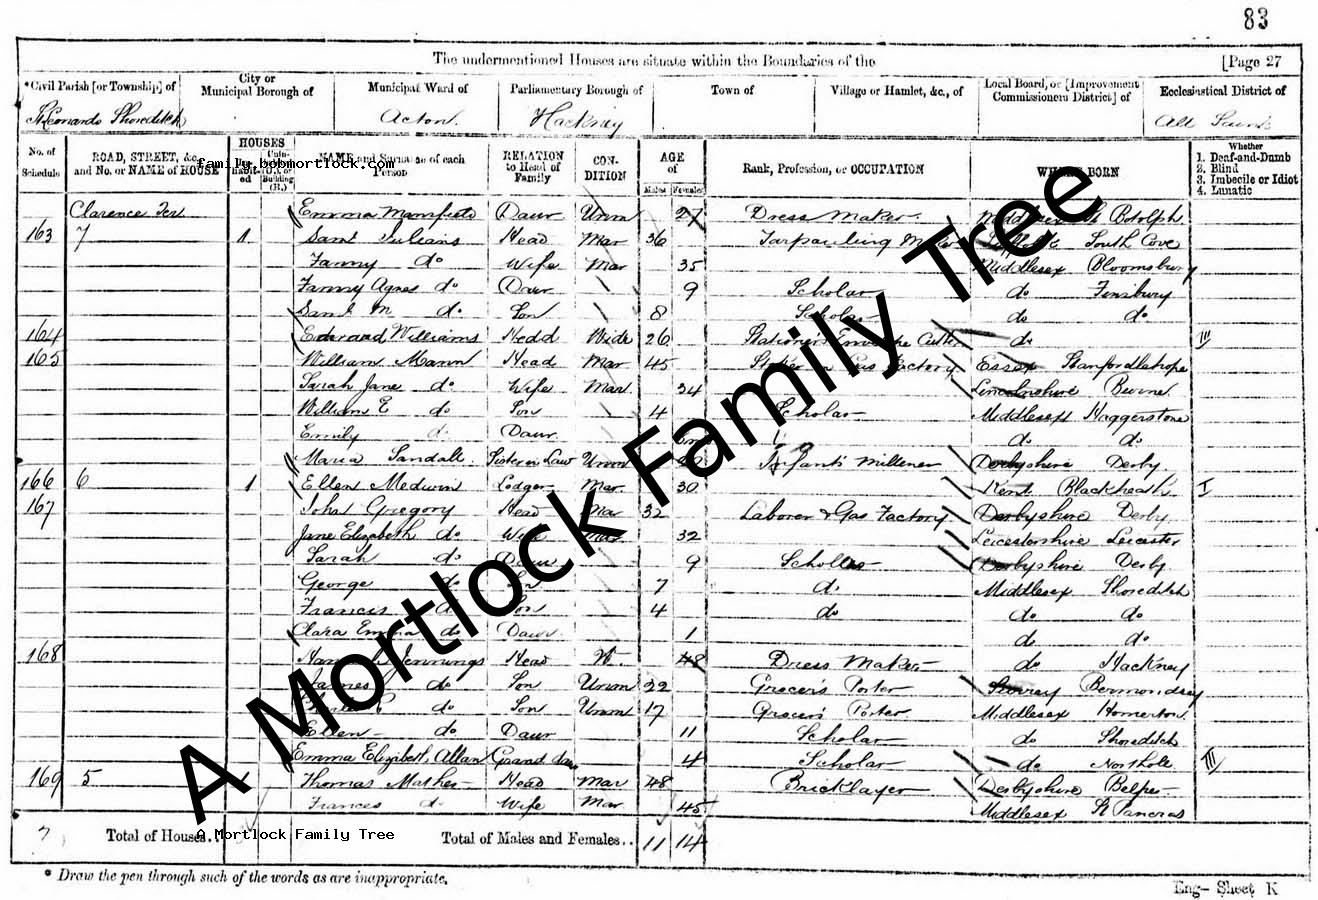 83
The undermentioned Houses are situate within the Boundaries of the [Page 27
*Civil Parish [or Township] of City or Municipal Borough of Municipal Ward of Parliamentary Borough of Town of Village or Hamlet, &c., of Local Board, or [Improvement Commissioners District] of Ecclesiastical District of
Shoreditch Acton Hackney All Saints
No. of Schedule ROAD, STREET, &c., and No. or NAME of HOUSE HOUSES NAME and Surname of each Person RELATION to Head of Family CONDITION AGE of Males Females Rank, Profession, or OCCUPATION WHERE BORN Whether 1. Deaf-and-Dumb 2. Blind 3. Imbecile or Idiot 4. Lunatic
family.bobmortlock.com
Clarence Ter. Emma Daur Unm 27 Dress Maker Botolph
163 7 1 Saml Head Mar 36 Tarpauling South Cove
Fanny do Wife Mar 35 Middlesex Bloomsbury
Fanny Agnes do Daur 9 Scholar do Finsbury
Saml M do Son 8 Scholar do do
164 Edward Williams Head 26 Stationer's Cutter do III
165 William Mann Head Mar 45 Factory Essex
Sarah Jane do Wife Mar 34 Lincolnshire
William E do Son 4 Scholar Middlesex Haggerstone
Emily do Daur do do
Maria Sandall Sister in Law Unm Infants Milliner Derbyshire Derby
166 6 1 Ellen Medwin Lodger Mar 30 Kent Blackheath I
167 John Gregory Head Mar 32 Laborer Gas Factory Derbyshire Derby
Jane Elizabeth do Wife Mar 32 Leicestershire Leicester
Sarah do Daur 9 Derbyshire Derby
George do Son 7 do Middlesex Shoreditch
Francis do Son 4 do do do
Clara Emma do Daur 1 do do
168 Jennings Head W 48 Dress Maker do Hackney
James do Son Unm 22 Grocer's Porter Surrey Bermondsey
do Son Unm 17 Grocer's Porter Middlesex Homerton
Ellen do Daur 11 Scholar do Shoreditch
Emma Elizabeth Allan Grand daur 4 Scholar do III
169 5 1 Thomas Mather Head Mar 48 Bricklayer Derbyshire Belper
Frances do Wife Mar 45 Middlesex St Pancras
Total of Houses.. A Mortlock Family Tree Total of Males and Females.. 11 14
* Draw the pen through such of the words as are inappropriate.
Eng- Sheet K
A Mortlock Family Tree